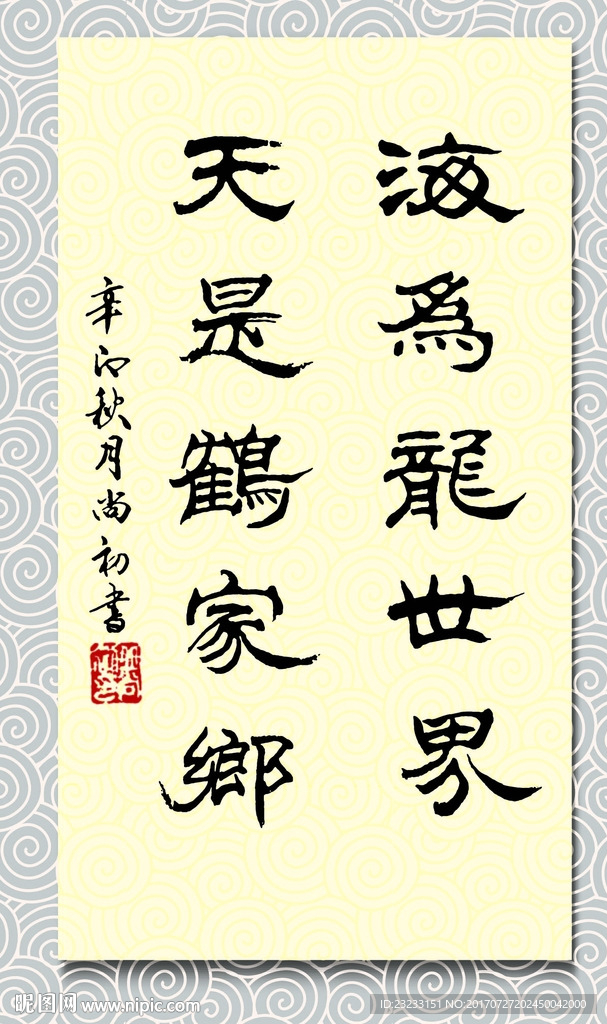 海為龍世界
天是鶴家鄉
辛卯秋月尚初書
昵图网 www.nipic.com
ID:23233151 NO:20170727202450042000